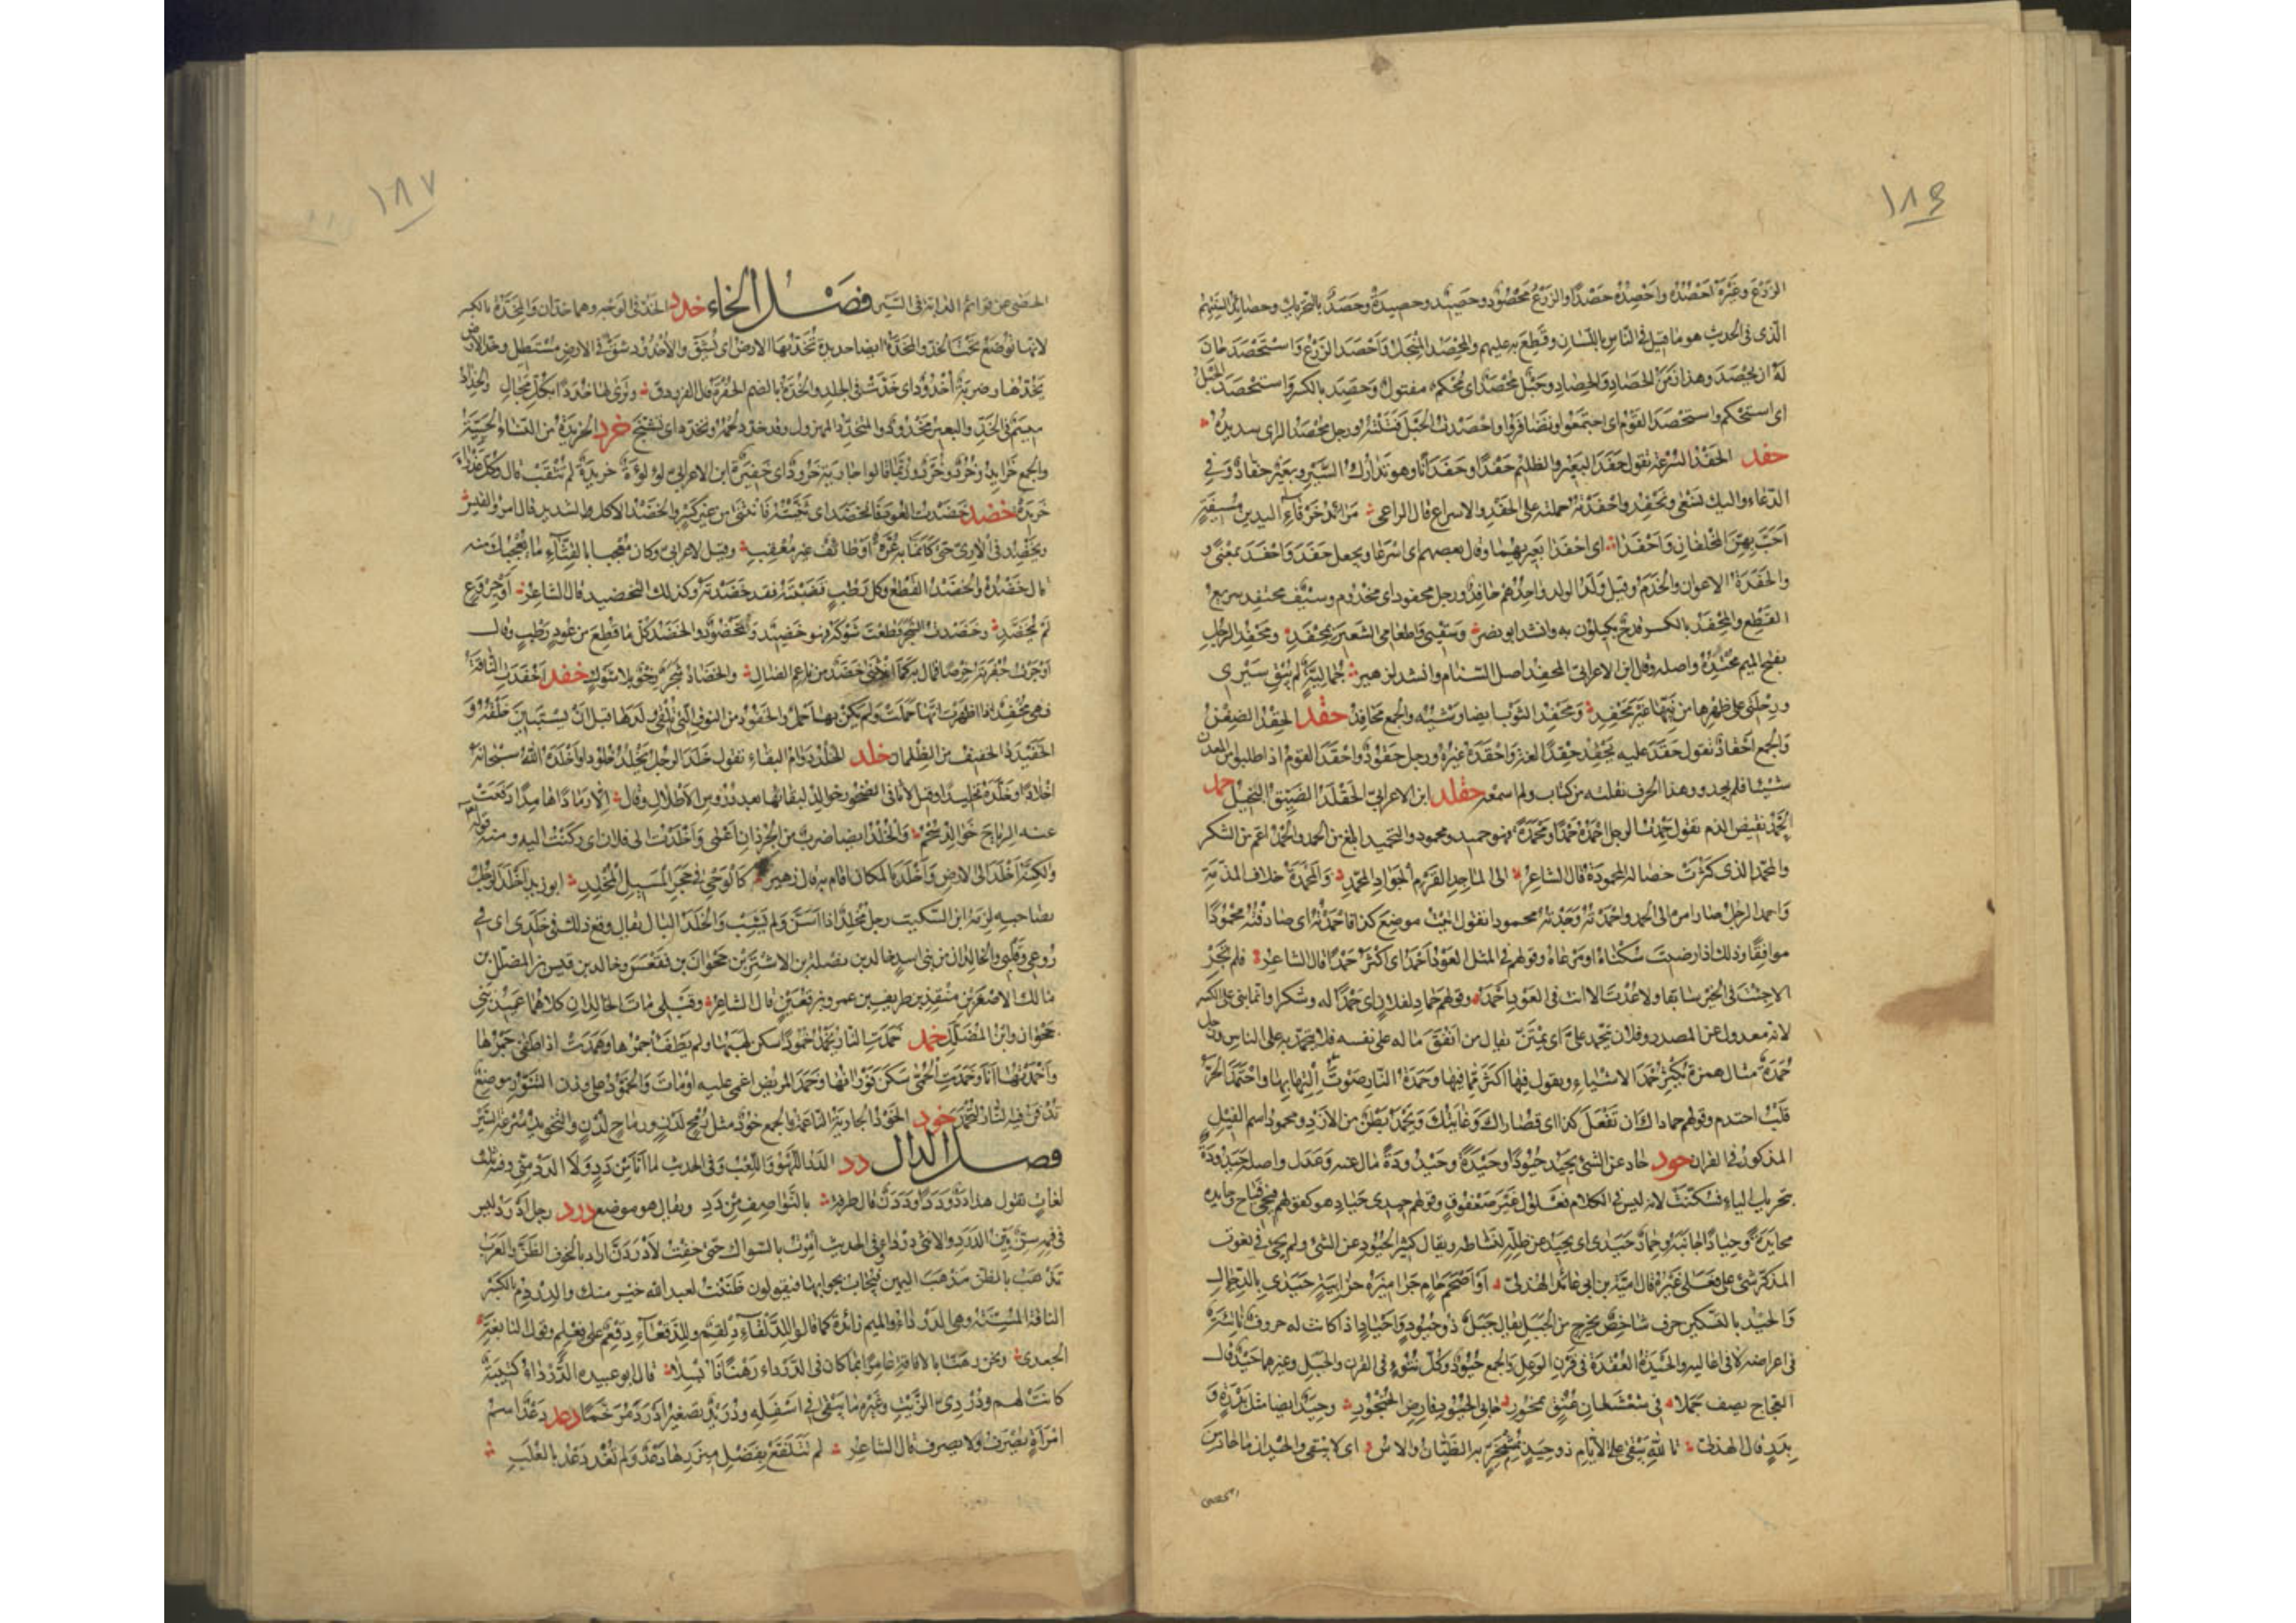 ١٨٦
الزرع وغيره احصده واحصده حصدا والزرع محصود وحصيد وحصيدة وحصد بالتحريك وحصائد السنتهم
الذي في الحديث هو ما قيل في الناس باللسان وقطع به عليهم والمحصد المنجل واحصد الزرع واستحصد حان
له ان يحصد وهذا زمن الحصاد والحصاد وحبل محصد اى محكم مفتول وحصد بالكسر واستحصد الحبل
اى استحكم واستحصد القوم اى اجتمعوا وتضافروا واحصدت الحبل فتلته ورجل محصد الراى سديده
حفد الحفد السرعة تقول حفد البعير والظليم حفدا وحفدانا وهو تدارك السير وبعير حفاد وفي
الدعاء واليك نسعى ونحفد واحفدته حملته على الحفد والاسراع قال الراعى مزائد خرقاء اليدين مسيفة
اخب بهن المخلفان واحفدا اى احفدا بعيريهما وقال بعضهم اى اسرعا ويجعل حفد واحفد بمعنى و
والحفدة الاعوان والخدم وقيل ولد الولد واحدهم حافد ورجل محفود اى مخدوم وسيف محتفد سريع
القطع والمحفد بالكسر قدح يكيلون به وانشد ابو نصر وسقيي واطعامى الشعير بمحفد ومحفد الرجل
بفتح الميم محتده واصله وقال ابن الاعرابي المحفد اصل السنام وانشد لزهير جمالية لم يبق سيرى
ورحلتى على ظهرها من نيها غير محفد ومحفد الثوب ايضا وشيه والجمع محافد حقد الحقد الضغن
والجمع احقاد تقول حقد عليه يحقد حقدا لغة واحقده غيره ورجل حقود واحقد القوم اذا طلبوا من المعدن
شيئا فلم يجدوا وهذا الحرف نقلته من كتاب ولم اسمعه حقلد ابن الاعرابي الحقلد الضيق البخيل حمد
الحمد نقيض الذم تقول حمدت الرجل احمده حمدا ومحمدة فهو حميد ومحمود والتحميد ابلغ من الحمد والحمد اعم من الشكر
والمحمد الذى كثرت خصاله المحمودة قال الشاعر الى الماجد القرم الجواد المحمد والمحمدة خلاف المذمة
واحمد الرجل صار امره الى الحمد واحمدته وجدته محمودا تقول اتيت موضع كذا فاحمدته اى صادفته محمودا
موافقا وذلك اذا رضيت سكناه او مرعاه وقولهم في المثل العود احمد اى اكثر حمدا قال الشاعر فلم تجر
الا جئت في الخير سابقا ولا عدت الا انت في العود احمد وقولهم حماد لفلان اى حمدا له وشكرا وانما بنى على الكسر
لانه معدول عن المصدر وفلان يتحمد على اى يمتن يقال من انفق ماله على نفسه فلا يتحمد به على الناس ورجل
حمدة مثال همزة يكثر حمد الاشياء ويقول فيها اكثر مما فيها وحمدة النار صوت التهابها واحتمد الحر
قلب احتدم وقولهم حماداك ان تفعل كذا اى قصاراك وغايتك ويحمد بطن من الازد ومحمود اسم الفيل
المذكور في القران حيد حاد عن الشئ يحيد حيودا وحيدة وحيدودة مال عنه وعدل واصله حيدودة
بتحريك الياء فسكنت لانه ليس في الكلام فعلول غير صعفوق وقولهم حيدى حياد هو كقولهم فيحى فياح وحايده
محايدة وحيادا جانبه وحمار حيدى اى يحيد عن ظله لنشاطه ويقال كثير الحيود عن الشئ ولم يجئ في نعوت
المذكر شئ على فعلى غيره قال امية بن ابى عائذ الهذلى او اصحم حام جراميزه حزابية حيدى بالدحال
والحيد بالتسكين حرف شاخص يخرج من الجبل يقال جبل ذو حيود واحياد اذا كانت له حروف ناتئة
في اعراضه لا في اعاليه والحيدة العقدة في قرن الوعل والجمع حيود وكل نتوء في القرن والجبل وغيرهما حيد قال
العجاج يصف جملا في شعشعان عنق يمخور حابى الحيود فارض الحنجور وحيد ايضا مثل بدرة و
بدر قال الهذلى تالله يبقى على الايام ذو حيد بمشمخر به الظيان والاس اى لا يبقى والحيدان ما حاد من
الحصى
١٨٧
الحصى عن قوائم الدابة في السير فصل الخاء خدد الخد في الوجه وهما خدان والمخدة بالكسر
لانها توضع تحت الخد والمخدة ايضا حديدة تخد بها الارض اى تشق والاخدود شق في الارض مستطيل وخد الارض
يخدها وضربة اخدود اى خدت في الجلد والخدة بالضم الحفرة قال الفرزدق وترى لها خددا بكل مجال والخداد
ميسم في الخد والبعير مخدود والمتخدد المهزول وقد خدد لحمه وتخدد اى تشنج خرد الخريدة من النساء الحيية
والجمع خرائد وخرد وخرد وربما قالوا جارية خرود اى خفرة ابن الاعرابى لؤلؤة خريدة لم تثقب قال وكل عذراء
خريدة خضد خضدت العود فانخضد اى ثنيته فانثنى من غير كسر والخضد الاكل الشديد قال امرؤ القيس
ويخضد في الارى حتى كانما به عرة او طائف غير معقب وقيل لاعرابى وكان معجبا بالقثاء ما يعجبك منه
قال خضده والخضد القطع وكل رطب قضبته فقد خضدته وكذلك التخضيد قال الشاعر او خروع
لم يخضد وخضدت الشجر قطعت شوكه فهو خضيد ومخضود والخضد كل ما قطع من عود رطب وقال
اوجرت حفرته حرصا فمال به كما انثنى خضد من ناعم الضال والخضاد شجر رخو بلا شوك خفد اخفدت الناقة
فهى مخفد اذا اظهرت انها حملت ولم يكن بها حمل والخفود من النوق التى تلقى ولدها قبل ان يستبين خلقه و
الخفيدد الخفيف من الظلمان خلد الخلد دوام البقاء تقول خلد الرجل يخلد خلودا واخلده الله سبحانه
اخلادا وخلده تخليدا وقيل لاثافى الصخور خوالد لبقائها بعد دروس الاطلال وقال الا رمادا هامدا دفعت
عنه الرياح خوالد سحم والخلد ايضا ضرب من الجرذان اعمى واخلدت الى فلان اى ركنت اليه ومنه قوله تعالى
ولكنه اخلد الى الارض واخلد بالمكان اقام به قال زهير كالوحى في حجر المسيل المخلد ابو زيد اخلد الرجل
بصاحبه لزمه ابن السكيت رجل مخلد اذا اسن ولم يشب والخلد البال يقال وقع ذلك في خلدى اى في
روعى وقلبى والخالدان من بنى اسد خالد بن نضلة بن الاشتر بن جحوان بن فقعس وخالد بن قيس بن المضلل بن
مالك الاصغر بن منقذ بن طريف بن عمرو بن قعين قال الشاعر وقبلى مات الخالدان كلاهما عميد بنى
جحوان وابن المضلل خمد خمدت النار تخمد خمودا سكن لهبها ولم يطفأ جمرها وهمدت اذا طفئ جمرها
واخمدتها انا وخمدت الحمى سكن فورانها وخمد المريض اغمى عليه او مات والخمود على وزن التنور موضع
تدفن فيه النار لتخمد خود الخود الجارية الناعمة والجمع خود مثل رمح لدن ورماح لدن والتخويد سرعة السير
فصل الدال دد الدد اللهو واللعب وفي الحديث ما انا من دد ولا الدد منى وفيه ثلث
لغات تقول هذا دد وددا وددن قال طرفة بالنواصف من دد ويقال هو موضع درد رجل ادرد ليس
في فيه سن بين الدرد والانثى درداء وفي الحديث امرت بالسواك حتى خفت لادردن اراد بالخوف الظن والعرب
تذهب بالظن مذهب اليمين فيجاب بجوابها فيقولون ظننت لعبد الله خير منك والدردم بالكسر
الناقة المسنة وهى الدرداء والميم زائدة كما قالوا للدلقاء دلقم وللدقعاء دقعم على فعلم وقول النابغة
الجعدى ونحن رهنا بالافاقة عامرا بما كان في الدرداء رهنا فابسلا قال ابو عبيده الدرداء كتيبة
كانت لهم ودردى الزيت وغيره ما يبقى في اسفله ودريد تصغير ادرد مرخما دعد دعد اسم
امرأة يصرف ولا يصرف قال الشاعر لم تتلفع بفضل مئزرها دعد ولم تغذ دعد بالعلب